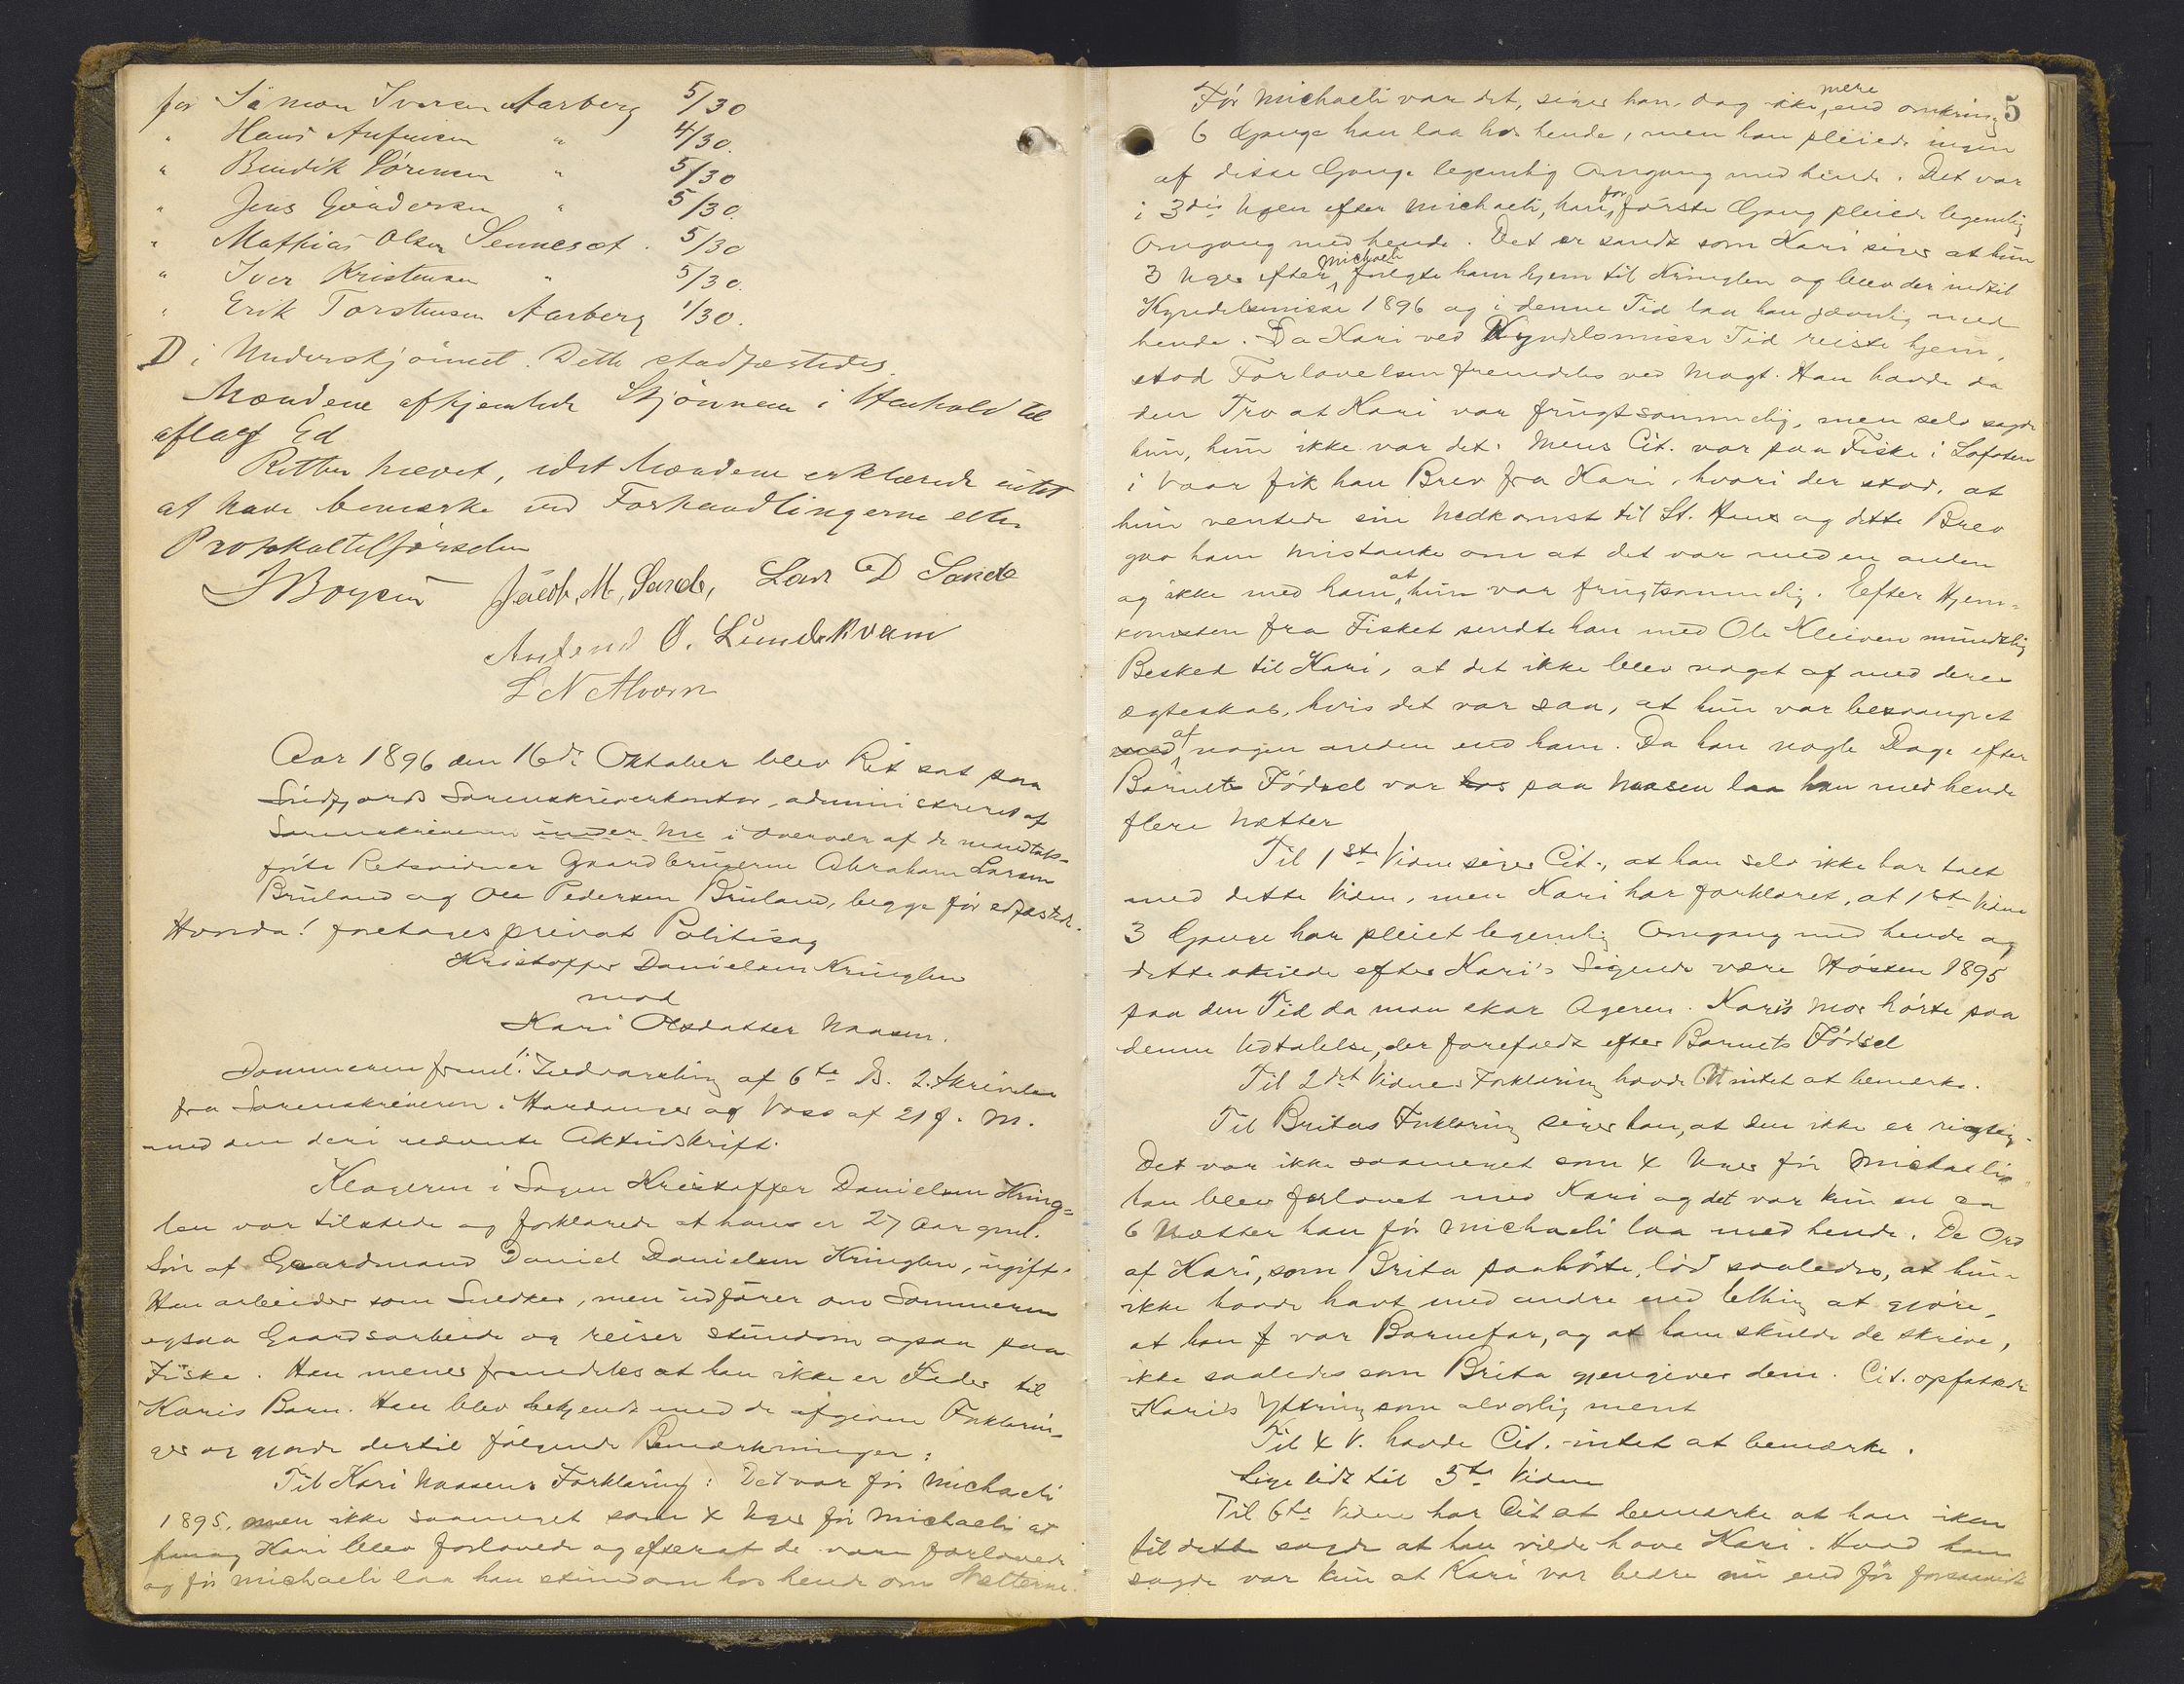 for Simon Iversen Aarberg 5/30
" Hans Anfinsen " 4/30.
" Bendik Sörensen " 5/30
" Jens " 5/30.
" Mathias Olsen Senneset. 5/30
" Iver Kristensen " 5/30.
" Erik Torstensen Aarberg 1/30.
D i Underskjönnet. Dette stadfæstedes.
Mændene afhjemlede Skjönnene i Henhold til
aflagt Ed
Retten hævet, idet Mændene erklærede intet
at have bemærke ved Forhandlingerne eller
Protokoltilförselen
J Boysen Jacob. M. Sande, Lars D Sande
Anfend O. Lundekvam
L N Alværn
Aar 1896 den 16de Oktober blev Ret sat paa
Söndfjords Sorenskriverkontor, administreret af
Sorenskriveren under No i Overvær af de mandtals-
förte Retsvidner Gaardbrugerne Abraham Larsen
Bruland og Ole Pedersen Bruland, begge för edfæstede.
Hvorda! foretages privat Politisag
Kristoffer Danielsen Kringlen
mod
Kari Olsdatter Naasen.
Dommeren freml: Indvarsling af 6te ds. 2. Skrivelse
fra Sorenskriveren i Hardanger og Voss af 21 f. M.
med den deri nævnte Aktudskrift.
Klageren i Sagen Kristoffer Danielsen Kring-
len var tilstede og forklarede at han er 27 Aar gml.
Sön af Gaardmand Daniel Danielsen Kringlen, ugift.
Han arbeider som Snedker, men udförer om Sommeren
ogsaa Gaardsarbeide og reiser stundom ogsaa paa
Fiske. Han mener fremdeles at han ikke er Fader til
Karis Barn. Han blev bekjendt med de afgivne Forklarin-
ger og gjorde dertil fölgende Bemærkninger:
Til Kari Naasens Forklaring: Det var för Michaeli
1895, men ikke saameget som 4 Uger för Michaeli at
han og Kari blev forlovede og efterat de vare forlovede
og för Michaeli laa han stundom hos hende om Nætterne.
5
För Michaeli var det, siger han, dog ikke mere end omkring
6 Gange han laa hos hende, men han pleiede ingen
af disse Gange legemlig Omgang med hende. Det var
i 3die Ugen efter Michaeli, han for förste Gang pleiede legemlig
Omgang med hende. Det er sandt som Kari siger at hun
3 Uger efter Michaeli fulgte ham hjem til Kringlen og blev der indtil
Kyndelsmisse 1896 og i denne Tid laa han jævnlig med
hende. Da Kari ved Kyndelsmisse Tid reiste hjem,
stod Forlovelsen fremdeles ved Magt. Han havde da
den Tro at Kari var frugtsommelig, men selv sagde
hun, hun ikke var det. Mens Cit. var paa Fiske i Lofoten
i Vaar fik han Brev fra Kari, hvori der stod, at
hun ventede sin Nedkomst til St. Hans og dette Brev
gav ham Mistanke om at det var med en anden
og ikke med ham, at hun var frugtsommelig. Efter Hjem-
komsten fra Fisket sendte han med Ole Kleiven mundtlig
Besked til Kari, at det ikke blev noget af med deres
Ægteskab, hvis det var saa, at hun var besvangret
med af nogen anden end ham. Da han nogle Dage efter
Barnets Födsel var hos paa Naasen laa han med hende
flere Nætter
Til 1ste Vidne siger Cit., at han selv ikke har talt
med dette Vidne, men Kari har forklaret, at 1ste Vidne
3 Gange har pleiet legemlig Omgang med hende og
dette skulde efter Kari's Sigende være Hösten 1895
paa den Tid da man skar Ageren. Karis Mor hörte paa
denne Udtalelse, der forefaldt efter Barnets Födsel
Til 2det Vidnes Forklaring havde Cit intet at bemærke.
Til Britas Forklaring siger han, at den ikke er rigtig.
Det var ikke saameget som 4 Uger för Michaeli
han blev forlovet med Kari og det var kun en
6 Nætter han för Michaeli laa med hende. De Ord
af Kari, som Brita paahörte, löd saaledes, at hun
ikke havde havt med andre end at gjöre,
at han f var Barnefar, og at ham skulde de skrive,
ikke saaledes som Brita gjengiver dem. Cit. opfattede
Karis Yttring som alvorlig ment
Til 4 V. havde Cit. intet at bemærke.
Lige lidt til 5te Vidne
Til 6te Vidne har Cit at bemærke at han ikke
til dette sagde at han vilde have Kari. Hvad han
sagde var kun at Kari var bedre nu end för forsaavidt